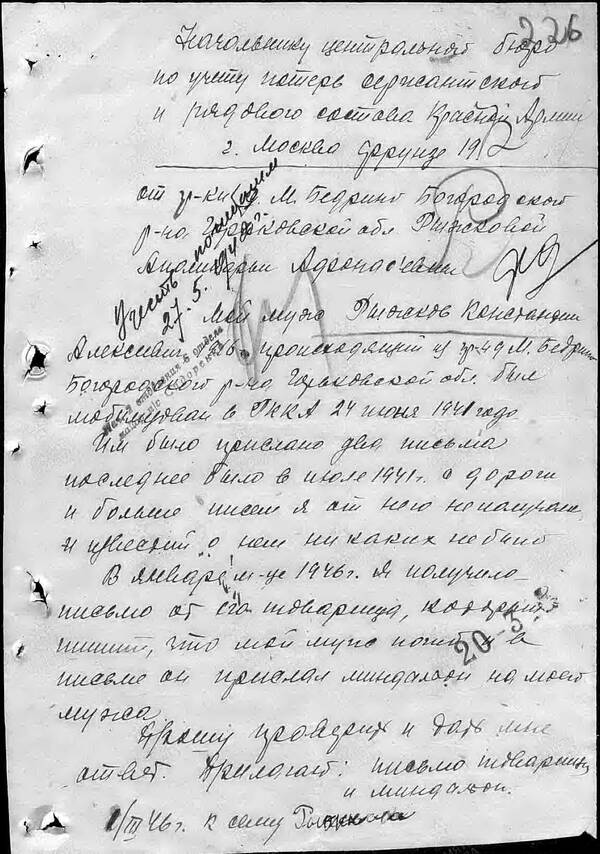 226
Начальнику центральной бюро
по учету потерь сержантского
и рядового состава Красной Армии
г. Москва Фрунзе 19
от гр-ки М. Бедрино Богородского
р-на Горьковской обл. Рыжковой
Учесть погибшим
27.5.1948г.
Мой муж Рыжков Константин
происходящий из гр-н д М. Бедрино
Богородского р-на Горьковской обл. был
мобилизован в РККА 24 июня 1941 года
Им было прислано два письма
последнее было в июле 1941г. с дороги
и больше писем я от него не получала
и известий о нем никаких не было
В январе м-це 1946г. я получила
письмо от его товарища, который
пишит, что мой муж а
20-3
письме он прислал миндальон на моего
мужа
Прошу проверить и дать мне
ответ. Прилагаю: письмо товарища
и миндальон.
1/III 46г. к сему